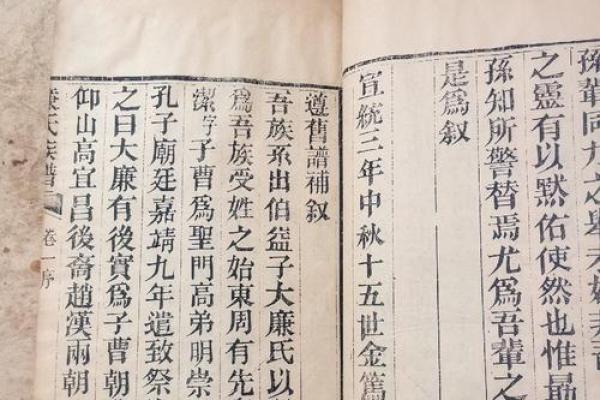 孫輩同力之舉未
之靈有以默佑使然也惟
孫知所警替焉尤爲吾輩之
是爲叙
宣統三年中秋十五世金篤
遵舊譜補叙
吾族系出伯益子大廉氏以
爲吾族受姓之始東周有先
潔字子曹爲聖門高弟明崇
孔子廟廷嘉靖九年遣致祭
之曰大廉有後實爲子曹朝
仰山高宜昌後裔趙漢兩朝
廉氏族譜 卷一序